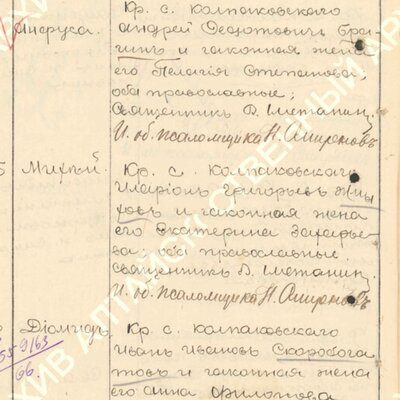 Кр. с. Колпаковскаго
Андрей Федотовичъ Бра-
гинъ и законная жена
его Пелагія Степанова,
оба православные;
Священникъ В. Шетанин.
И. об. псаломщика Н. Амироновъ
5
Кр. с. Колпаковскаго
Иларіонъ Григорьевъ
ховъ и законная жена
его Екатерина Захарье-
ва; оба православные.
Священникъ В. Шетанин.
И. об. псаломщика Н. Амироновъ
Діомидъ. Кр. с. Колпаковскаго
Иванъ Ивановъ Скоробога-
товъ и законная жена
его Анна Филатова